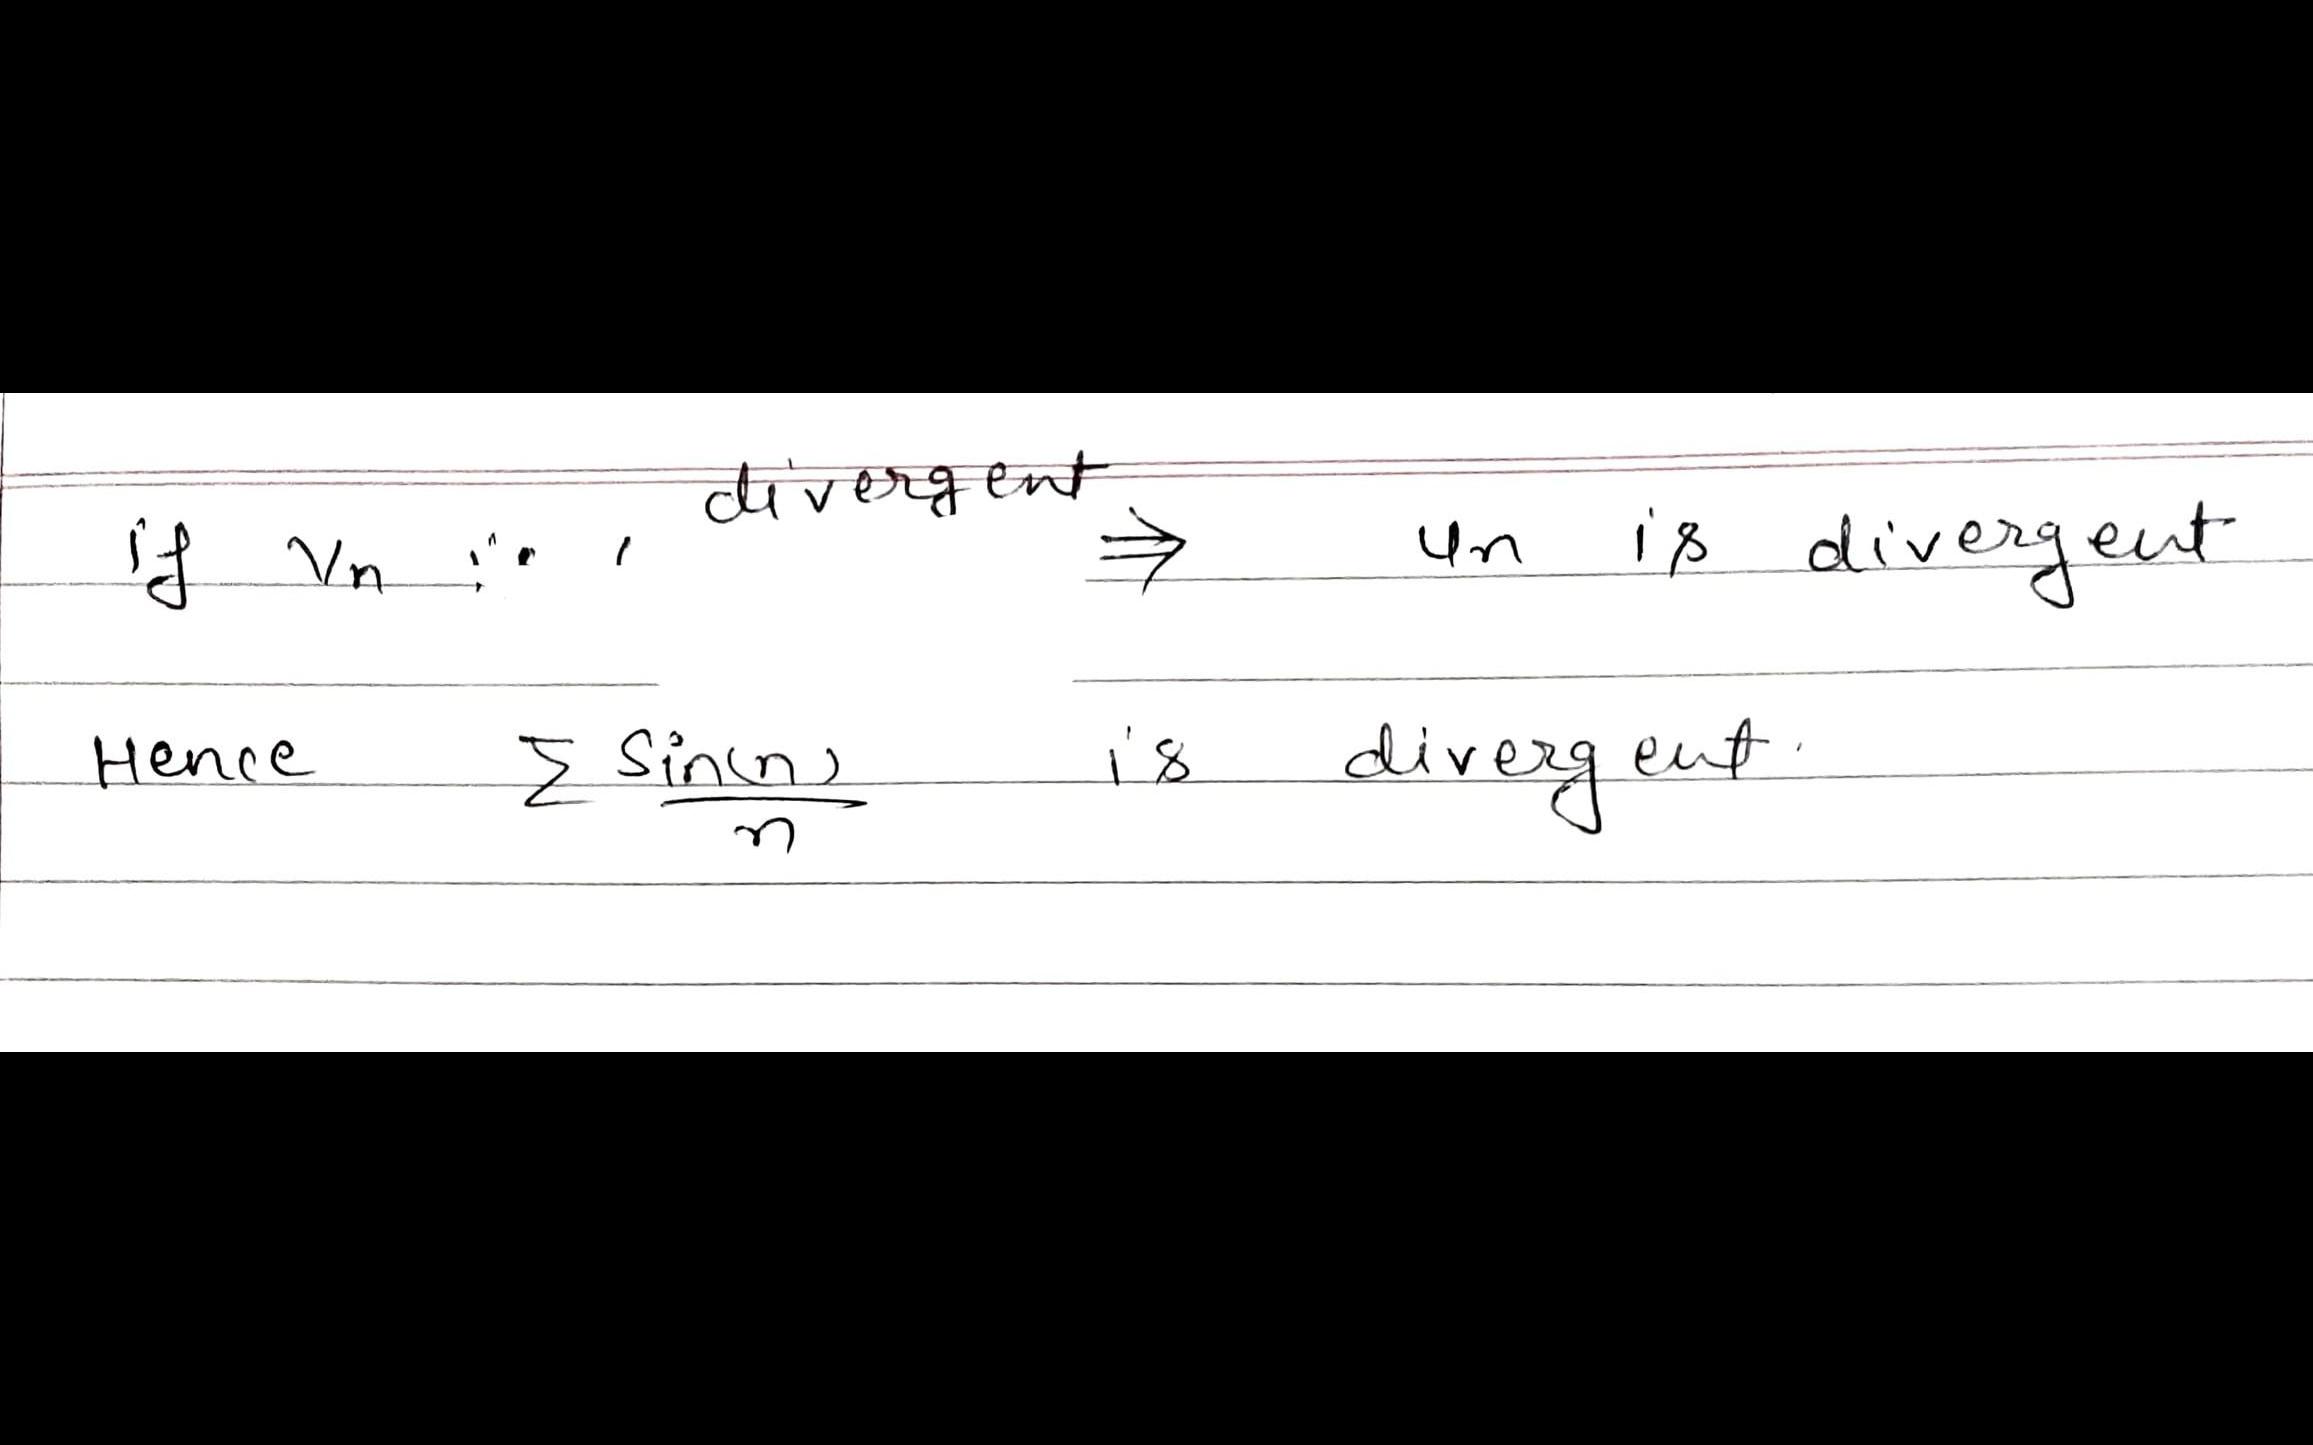 if Vn divergent ⇒ un is divergent
Hence Σ Sin(n)/n is divergent.